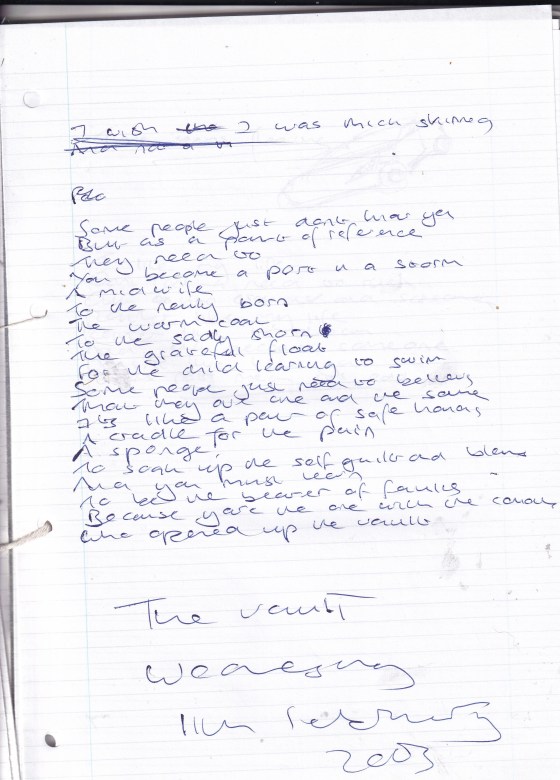 I wish I was thick skinned
Some people just dont know yer
But as a point of reference
They need to
You become a port in a storm
A midwife
To the newly born
The warm coat
To the sadly shorn
The grateful float
For the child learning to swim
Some people just need to believe
That they are one and the same
Its like a pair of safe hands
A cradle for the pain
A sponge,
To soak up the self guilt and blame
And you must learn
To be the bearer of faults
Because you're the one with the
who opened up the vault
The vault
Wednesday
11th February
2003